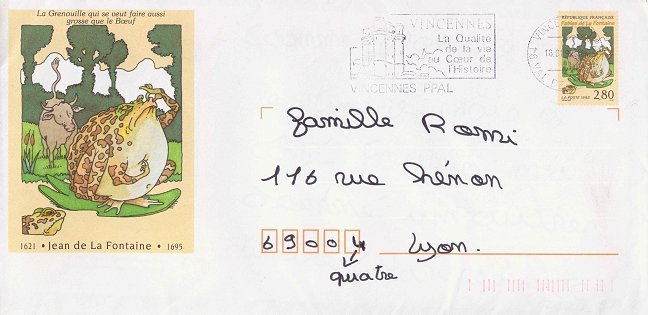 La Grenouille qui se veut faire aussi
grosse que le Bœuf
1621 • Jean de La Fontaine • 1695
VINCENNES
La Qualité
de la vie
au Cœur de
l'Histoire
VINCENNES PPAL
VINCEN
RÉPUBLIQUE FRANÇAISE
Fables de La Fontaine
LA POSTE 1995
2,80
famille Romi
116 rue Hénon
69004 Lyon.
quatre